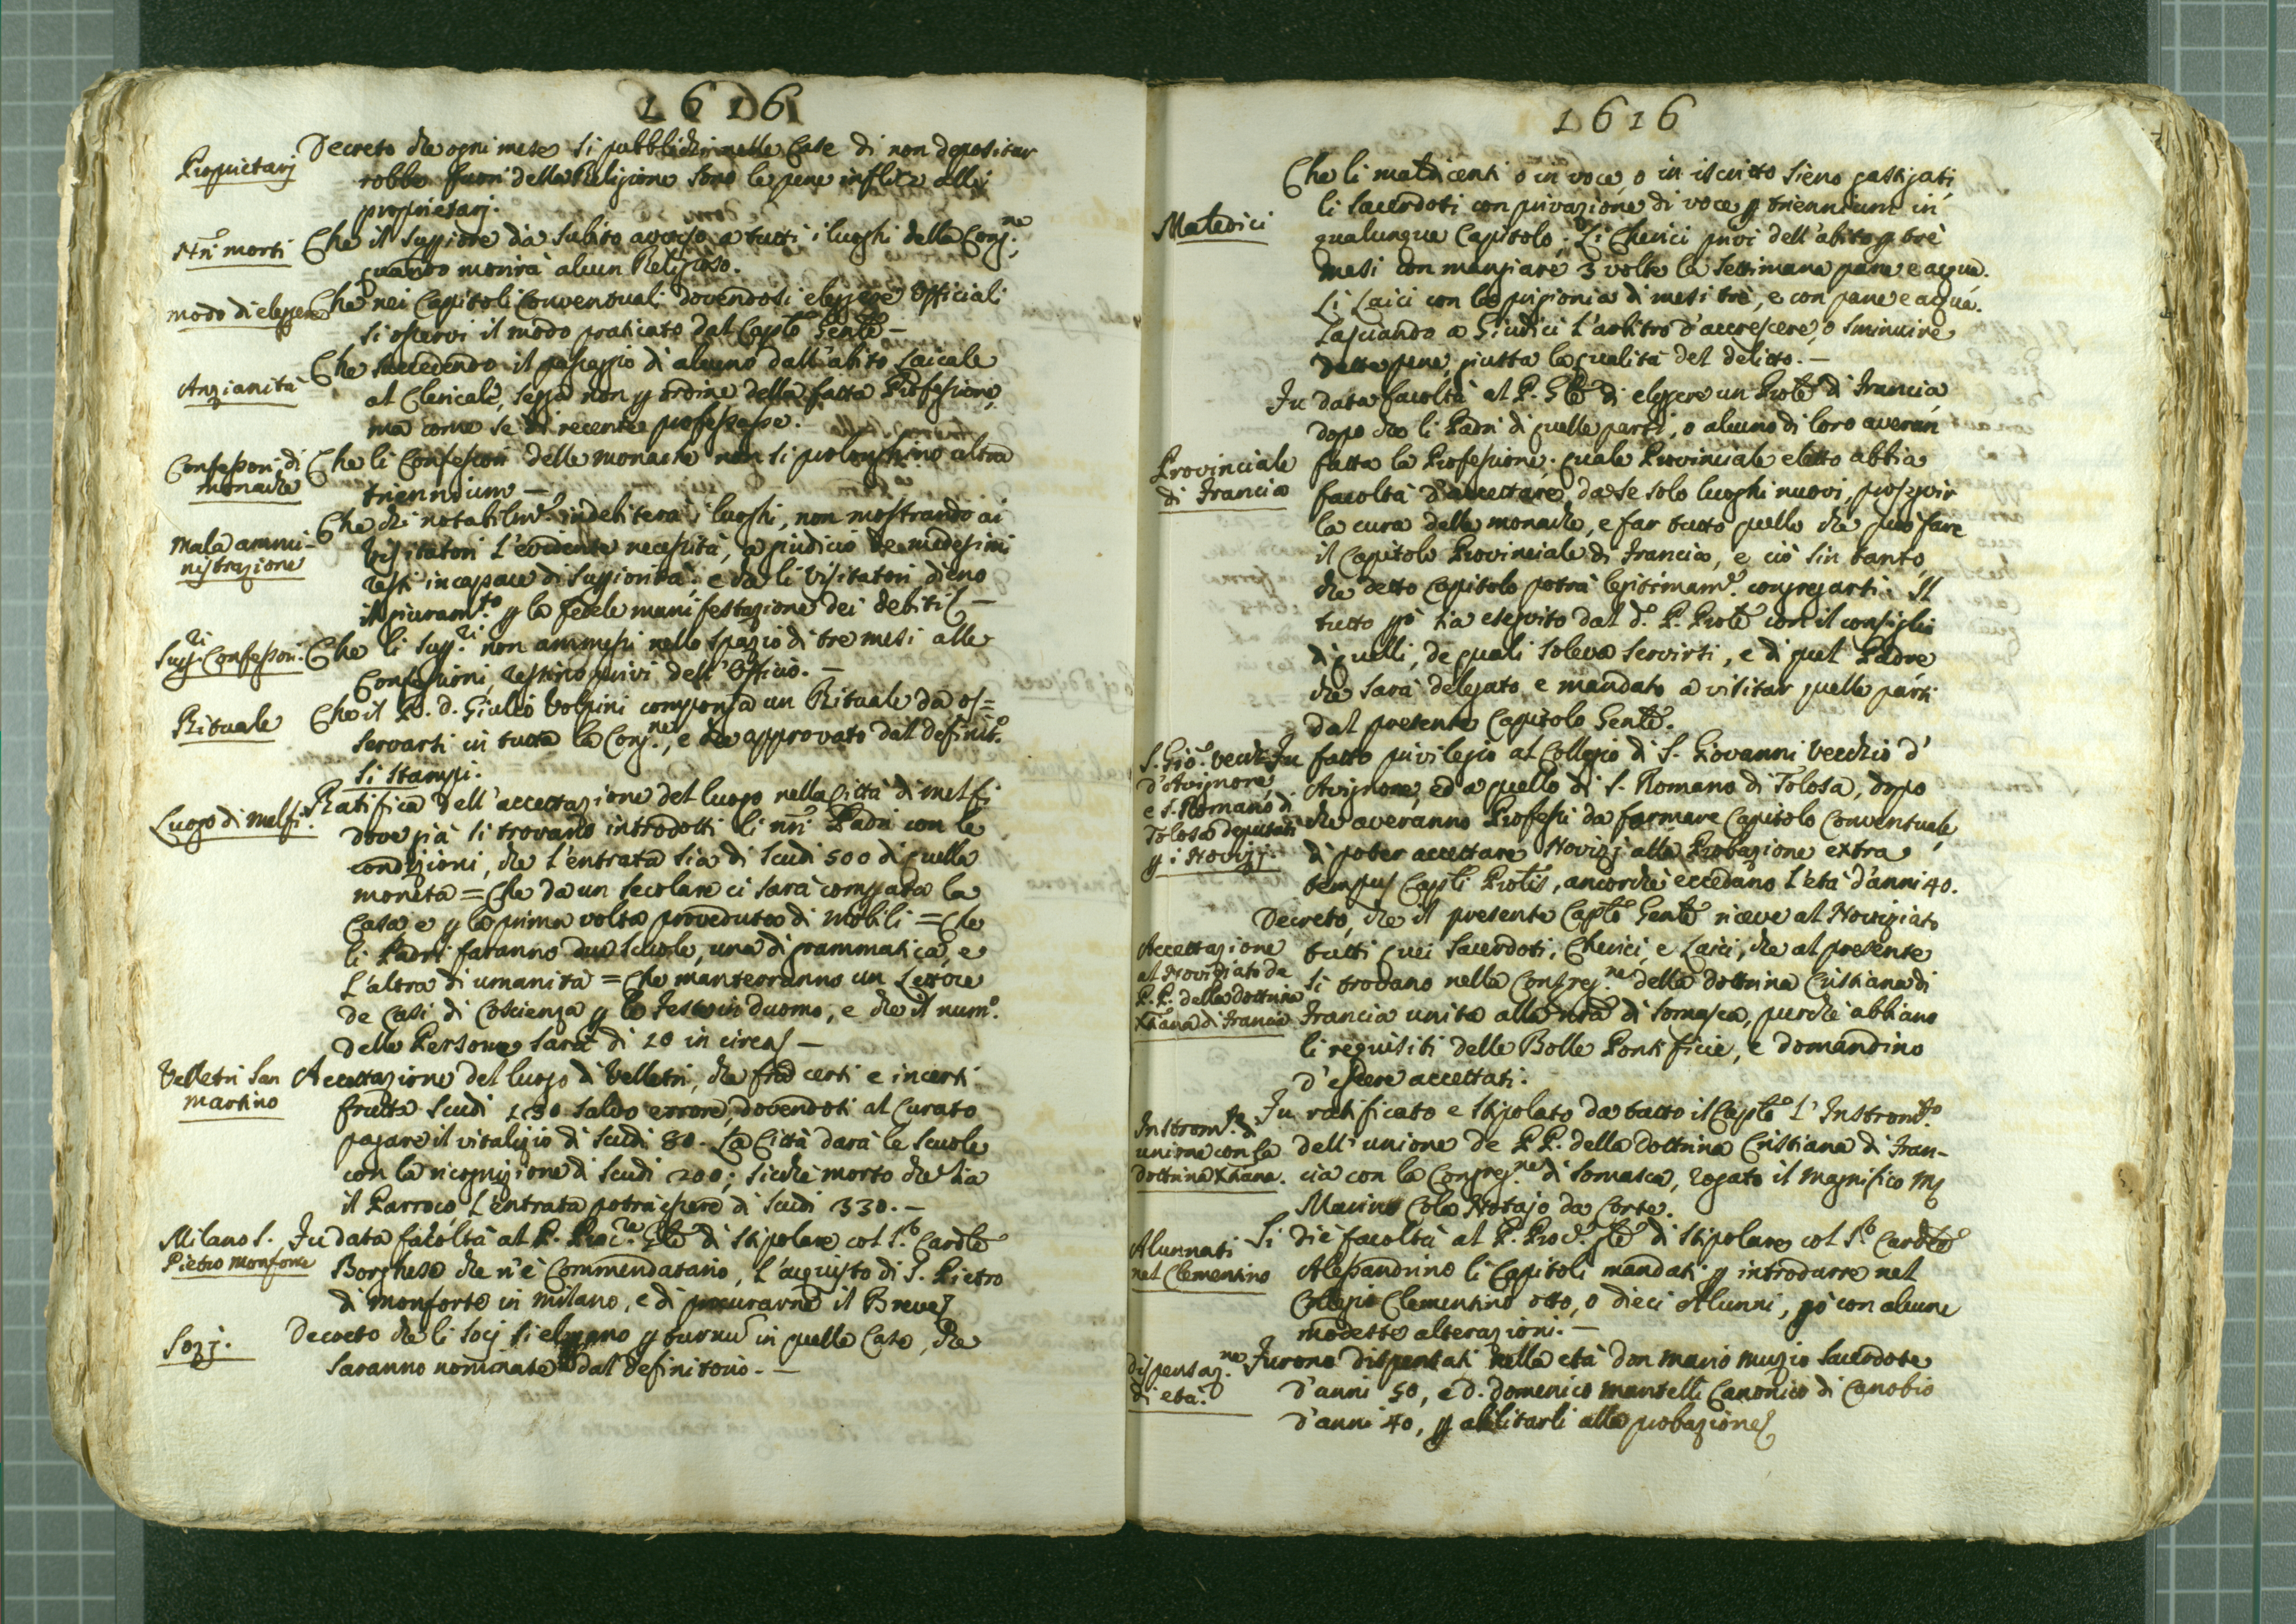 1616
Proprietarj
Decreto che ogni mese si pubblichi nelle Case di non depositar
robba fuori della Religione sotto le pene inflitte alli
proprietarj.
Nrī morti
Che il Suppiore dia subito avviso a tutti i luoghi della Cong.ne,
quando morirà alcun Religioso.
modo di eleggere
Che nei Capitoli Conventuali dovendosi eleggere Officiali
si osservi il modo praticato dal Caplō Genlē —
Anzianità
Che succedendo il passaggio di alcuno dall'abito Laicale
al Clericale, segga non p ordine della fatta Professione,
ma come se di recente professasse.
Confessori di
monache
Che li Confessori delle monache non si prolonghino ultra
triennium —
Mala ammi-
nistrazione
Che chi notabilmē. indebiterà i luoghi, non mostrando ai
Visitatori l'evidente necessità, a giudicio de medesimi
resti incapace di Suppiorità: e che li Visitatori dieno
il giuram.to p la fedele manifestazione dei debiti —
Supp.ri Confessori.
Che li Supp.ri non ammessi nello spazio di tre mesi alle
Confessioni, restino privi dell'Officio. —
Rituale
Che il P. d. Giulio Volpini componga un Rituale da os=
servarsi in tutta la Cong.ne, e che approvato dal definit.o
si stampi.
Luogo di Melfi.
Ratifica dell'accettazione del luogo nella Città di Melfi
dove già si trovano introdotti li nrī Padri con le
condizioni, che l'entrata sia di scudi 500 di quella
moneta = Che da un secolare ci sarà comprata la
Casa e p la prima volta proveduta di mobili = Che
li Padri faranno due Scuole, una di grammatica, e
l'altra di umanità = Che manterranno un Lettore
de Casi di Coscienza p le feste in duomo, e che il num.o
delle Persone sarà di 20 in circa —
Velletri San
Martino
Accettazione del luogo di Velletri, che frà certi e incerti
frutta scudi 130 salvo errore, dovendosi al Curato
pagare il vitalizio di scudi 80. La Città darà le Scuole
con la ricognizione di scudi 200; sicchè morto che sia
il Parroco, l'entrata potrà essere di scudi 330. —
Milano S.
Pietro Monforte
Fu data facoltà al P. Proc.re Glē di stipolare col S.r Cardlē
Borghese che n'è Commendatario, l'acquisto di S. Pietro
di Monforte in Milano, e di procurarne il Breve
Sozj.
Decreto che li Socj si eleggano p turnū in quelle Case, che
saranno nominate dal definitorio. —
1616
Maledici
Che li maldicenti o in voce, o in iscritto sieno gastigati,
li Sacerdoti con privazione di voce p triennium in
qualunque Capitolo; Li Cherici privi dell'abito p trè
mesi con mangiare 3 volte la settimana pane e acqua.
Li Laici con la prigionia di mesi trè, e con pane e acqua.
Lasciando a Giudici l'arbitro d'accrescere, o sminuire
dette pene, giusta la qualità del delitto. —
Provinciale
di Francia
Fu data facoltà al P. Glē di eleggere un Prolē di Francia
dopo che li Padri di quelle parti, o alcuno di loro averan
fatta la Professione. quale Provinciale eletto abbia
facoltà d'accettare da se solo luoghi nuovi, proseguir
la cura delle monache, e far tutto quello che può fare
il Capitolo Provinciale di Francia, e ciò sin tanto,
che detto Capitolo potrà legitimamē. congregarsi. Il
tutto pò sia eseguito dal d.o P. Prolē con il consiglio
di quelli, de quali soleva servirsi, e di quel Padre
che sarà delegato e mandato a visitar quelle parti
dal presente Capitolo Genlē.
S. Gio. Vecchio
d'Avignone,
e S. Romano di
Tolosa deputati
p i Novizj.
Fu fatto privilegio al Collegio di S. Giovanni Vecchio d'
Avignone, ed a quello di S. Romano di Tolosa, dopo
che averanno Professi da formare Capitolo Conventuale,
di poter accettare Novizj alla Probazione extra
tempus Caplī Prolīs, ancorchè eccedano l'età d'anni 40.
Accettazione
al Noviziato de
P.P. della Dottrina
Xñana di Francia
Decreto, che il presente Caplō Genlē riceve al Noviziato
tutti quei Sacerdoti, Cherici, e Laici, che al presente
si trovano nella Congreg.ne della dottrina Cristiana di
Francia unita alla nrā di Somasca, purchè abbiano
li requisiti delle Bolle Pontificie, e domandino
d'essere accettati.
Instrom.to di
unione con la
dottrina Xñana.
Fu ratificato e stipolato da tutto il Caplō l'Instrom.to
dell'unione de P.P. della Dottrina Cristiana di Fran-
cia con la Congreg.ne di Somasca, rogato il Magnifico
Marino Cola Notajo da Corte.
Alunnati
nel Clementino
Si diè facoltà al P. Proc. glē di stipolare col S.r Cardlē
Alessandrino li Capitoli mandati p introdurre nel
Collegio Clementino otto, o dieci Alunni, pò con alcune
modeste alterazioni. —
dispensaz.ne
di età.
Furono dispensati nella età don Mario Muzio Sacerdote
d'anni 50, e D. Domenico Mantelli Canonico di Canobio
d'anni 40, p abilitarli alla probazione